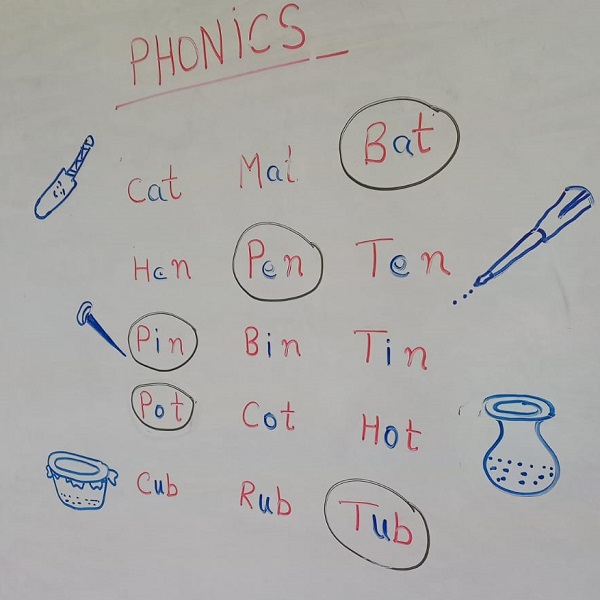 PHONICS_
Cat Mat Bat
Hen Pen Ten
Pin Bin Tin
Pot Cot Hot
Cub Rub Tub